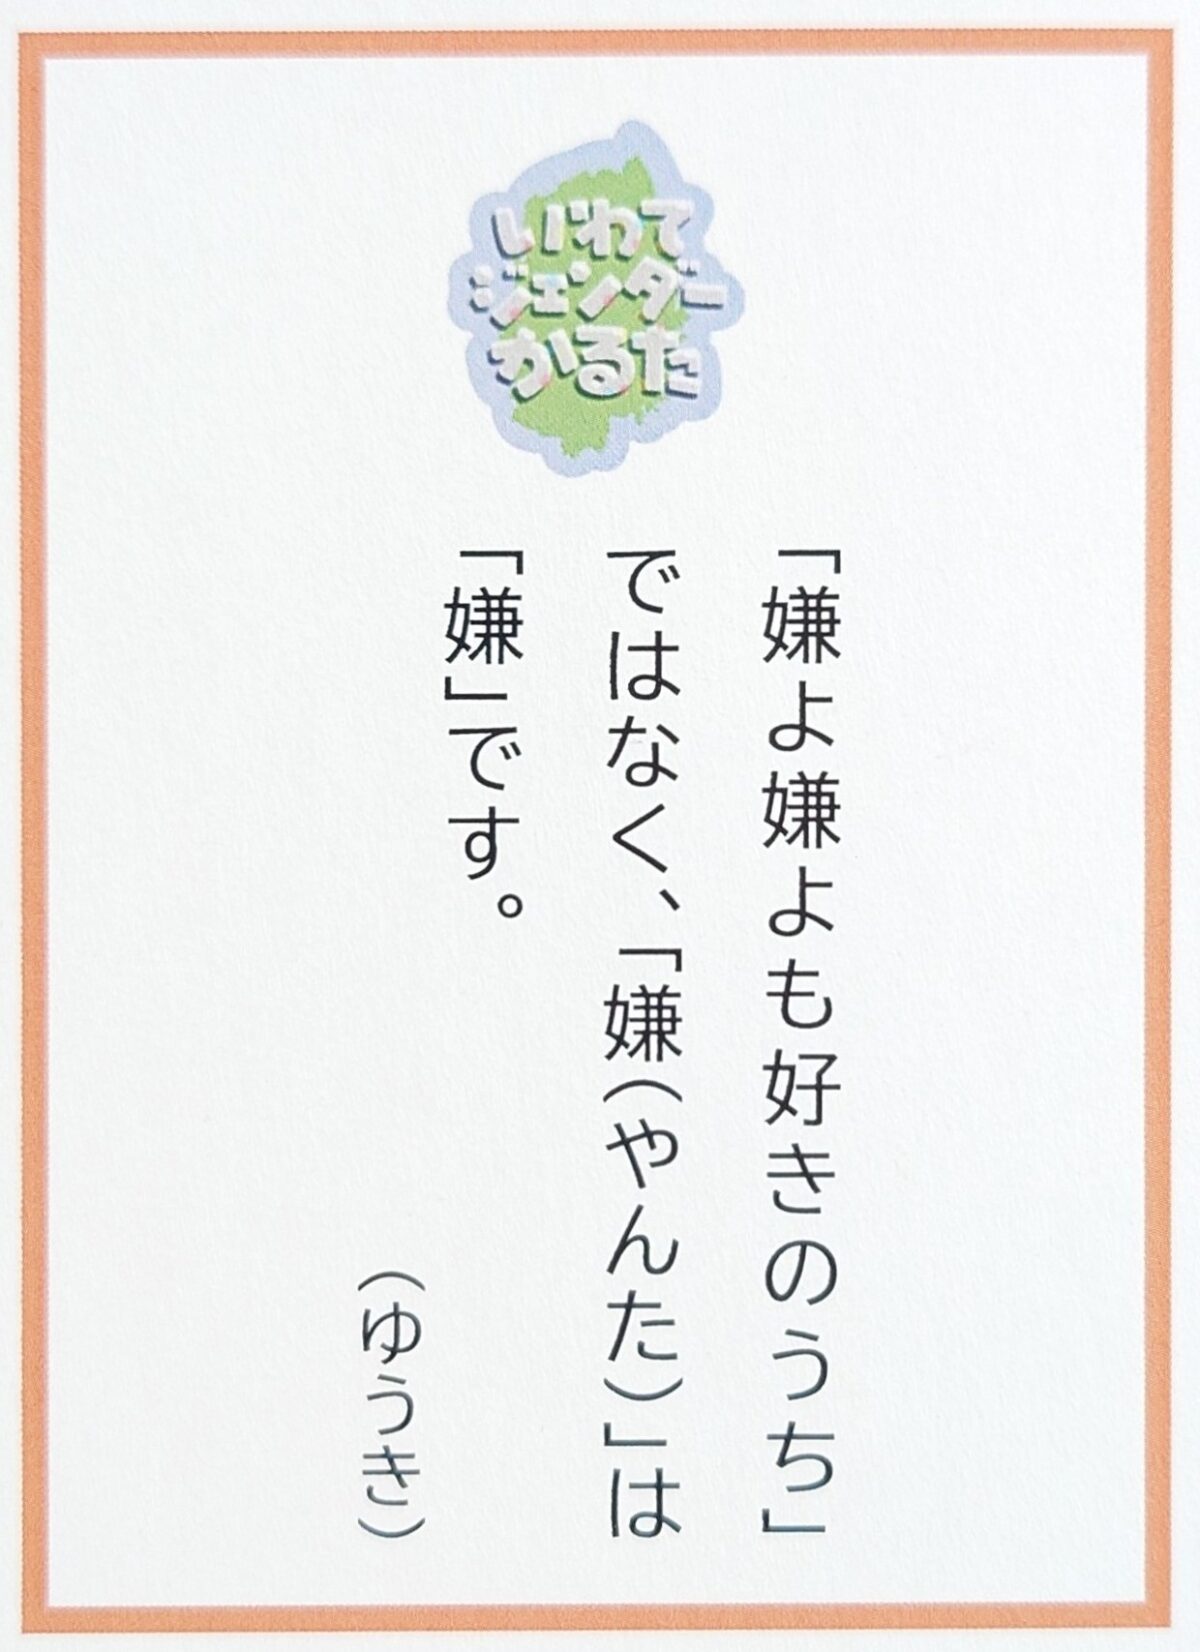 いわて
ジェンダー
かるた
「嫌よ嫌よも好きのうち」
ではなく、「嫌(やんた)」は
「嫌」です。
(ゆうき)